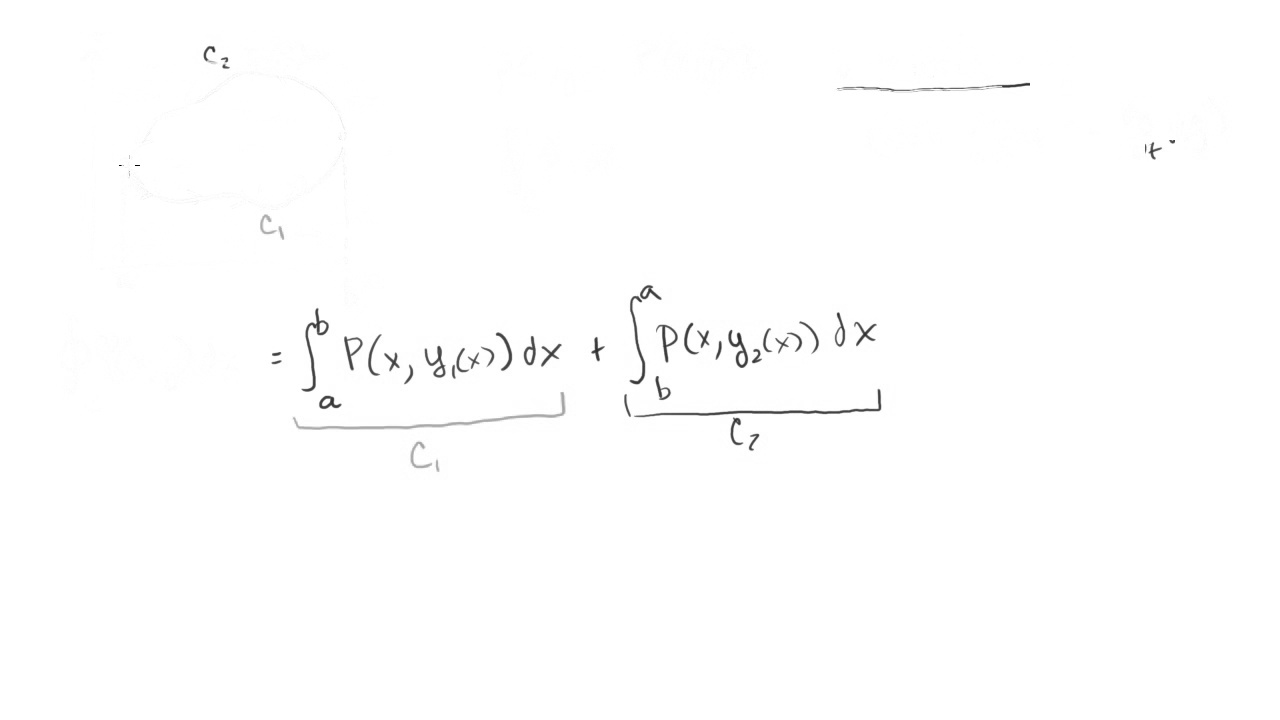 C₂
C₁
= ∫ₐᵇ P(x, y₁(x)) dx + ∫_bᵃ P(x, y₂(x)) dx
C₁
C₂